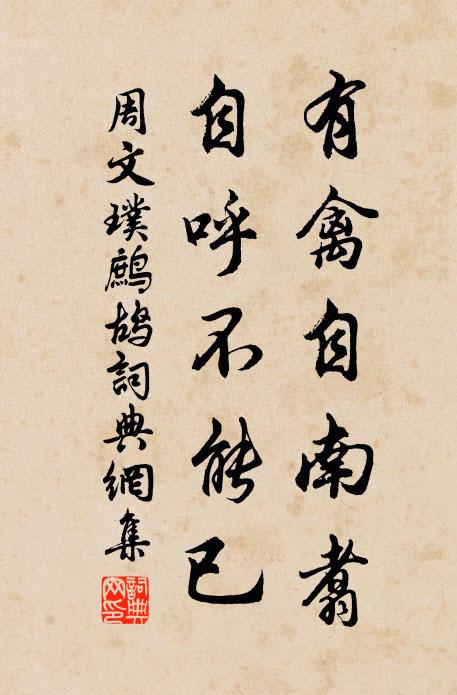 有禽自南翥
自呼不能已
周文璞鷓鴣詞典網集
詞典網印